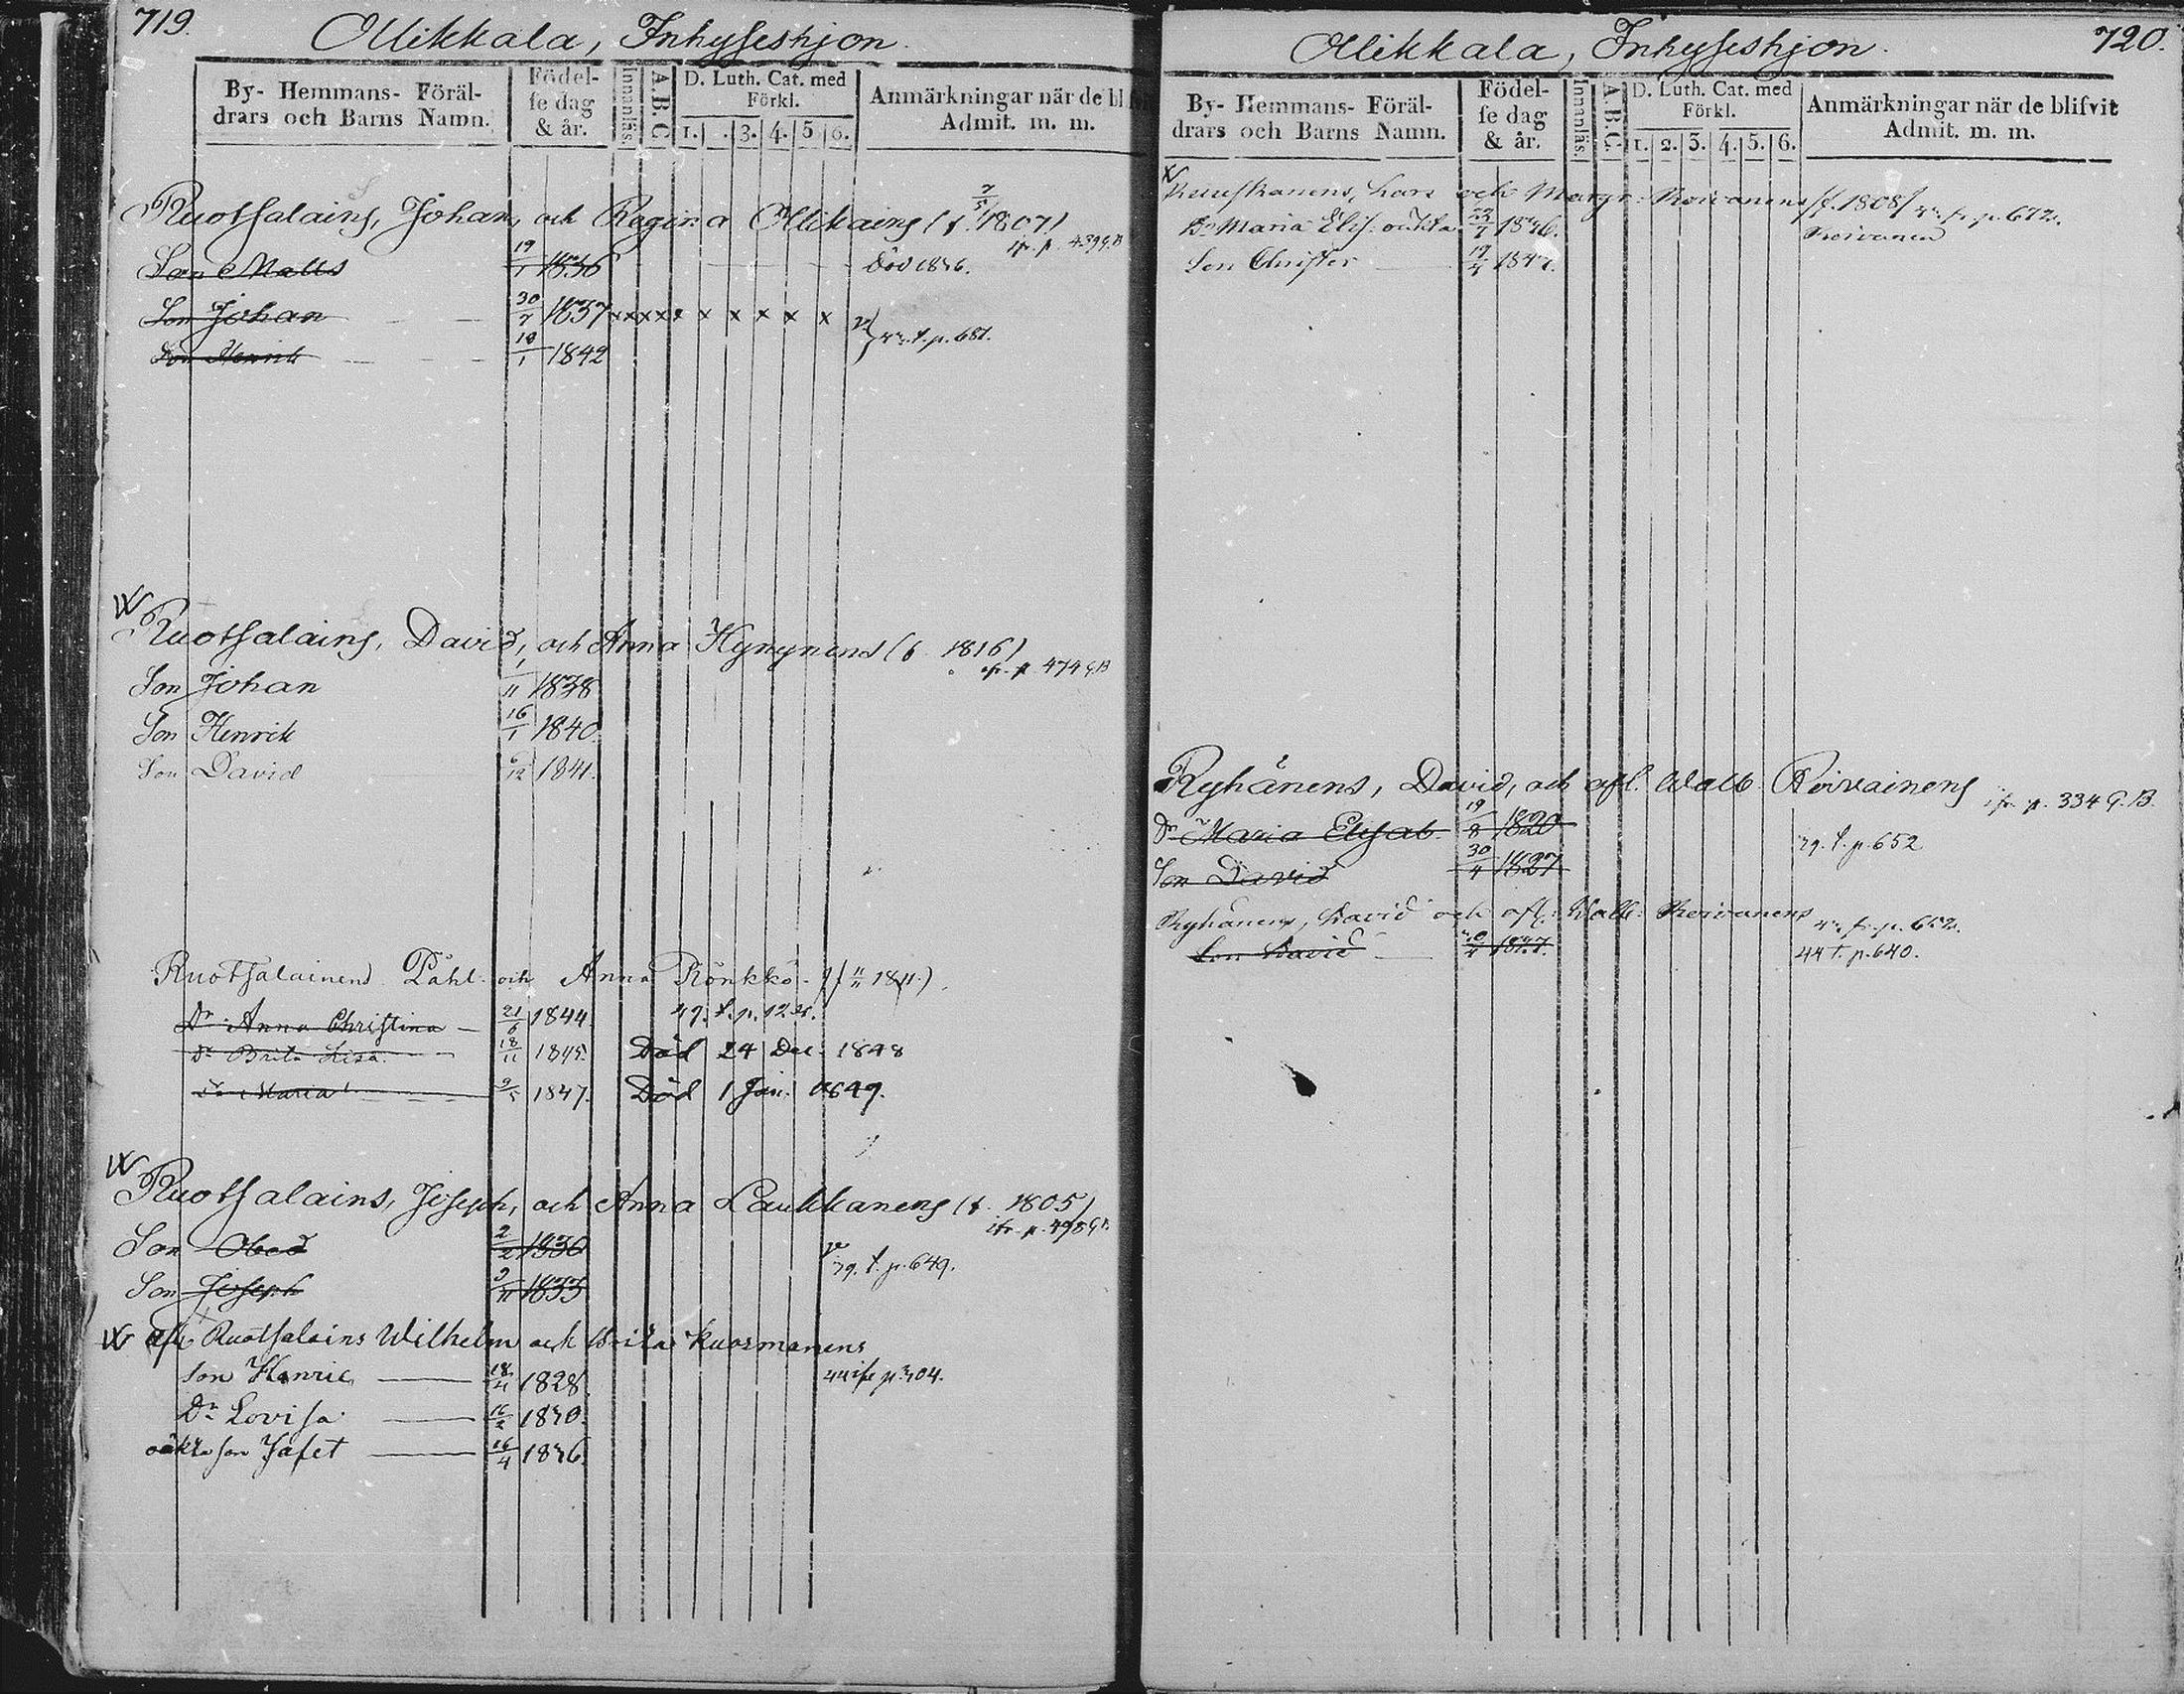 719.
Ollikkala, Inhyseshjon.
By- Hemmans- Föräl-
drars och Barns Namn.
Födel-
se dag
& år.
Innanläs.
A.B.C
D. Luth. Cat. med
Förkl.
1. . 3. 4. 5 6.
Anmärkningar när de bl
Admit. m. m.
Ruotsalains, Johan, och Regina Ollikains (f. 7/5 1807)
ifr. p. 439 G.B
Son Matts 19/1 1836 Död 1836.
Son Johan 30/7 1837 x x x x x x x x x x
Son Henrik 10/1 1842 t. p. 681.
Ruotsalains, David, och Anna Hynynens (f. 1816)
ifr. p. 474 G.B
Son Johan 1/11 1838
Son Henrik 16/1 1840.
Son David 6/12 1841.
Ruotsalainens Påhl och Anna Rönkkö (f " 1811.)
Dr Anna Christina 21/6 1844. 49. t. p.
Dr Brita Lisa 18/11 1845. Död 24 Dec. 1848
Dr Maria 9/5 1847. Död 1 Jan. 1849.
Ruotsalains, Joseph, och Anna Laukkanens (f. 1805)
ifr. p. 498 G.B.
Son Obed 2/2 1830
39. t. p. 649.
Son Joseph 3/11 1833
afl. Ruotsalains Wilhelm och Brita Kuosmanens
Son Henric 18/4 1828. 44 ifr p. 304.
Dr Lovisa 16/2 1830.
oäkta son Jafet 16/4 1836.
720.
Ollikkala, Inhyseshjon.
By- Hemmans- Föräl-
drars och Barns Namn.
Födel-
se dag
& år.
Innanläs.
A.B.C.
D. Luth. Cat. med
Förkl.
1. 2. 3. 4. 5. 6.
Anmärkningar när de blifvit
Admit. m. m.
Lars och Margr. Roivanens (f. 1808) fr. p. 672.
Dr Maria Elis. oäkta 1836. Roivanen
Son Christer 1847.
Ryhänens, David, och afl. Walb. Roivainens ifr. p. 334 G.B.
Dr Maria Elisab. 19/8 1820
39. t. p. 652
Son David 30/4 1827
Ryhänens, David och afl. Walb. Roivanens fr. p. 652.
Son David 30/4 1827. 44 t. p. 640.